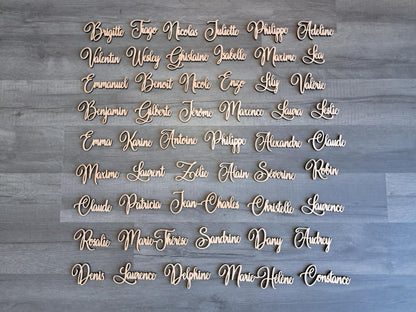 Brigitte Tiago Nicolas Juliette Philippe Adeline
Valentin Wesley Ghislaine Isabelle Maxime Lea
Emmanuel Benoit Nicole Enzo Lily Valérie
Benjamin Gilberte Jérôme Maxence Laura Leslie
Emma Karine Antoine Philippe Alexandre Claude
Maxime Laurent Zoélie Alain Séverine Robin
Claude Patricia Jean-Charles Christelle Laurence
Rosalie Marie-Thérèse Sandrine Dany Audrey
Denis Laurence Delphine Marie-Hélène Constance